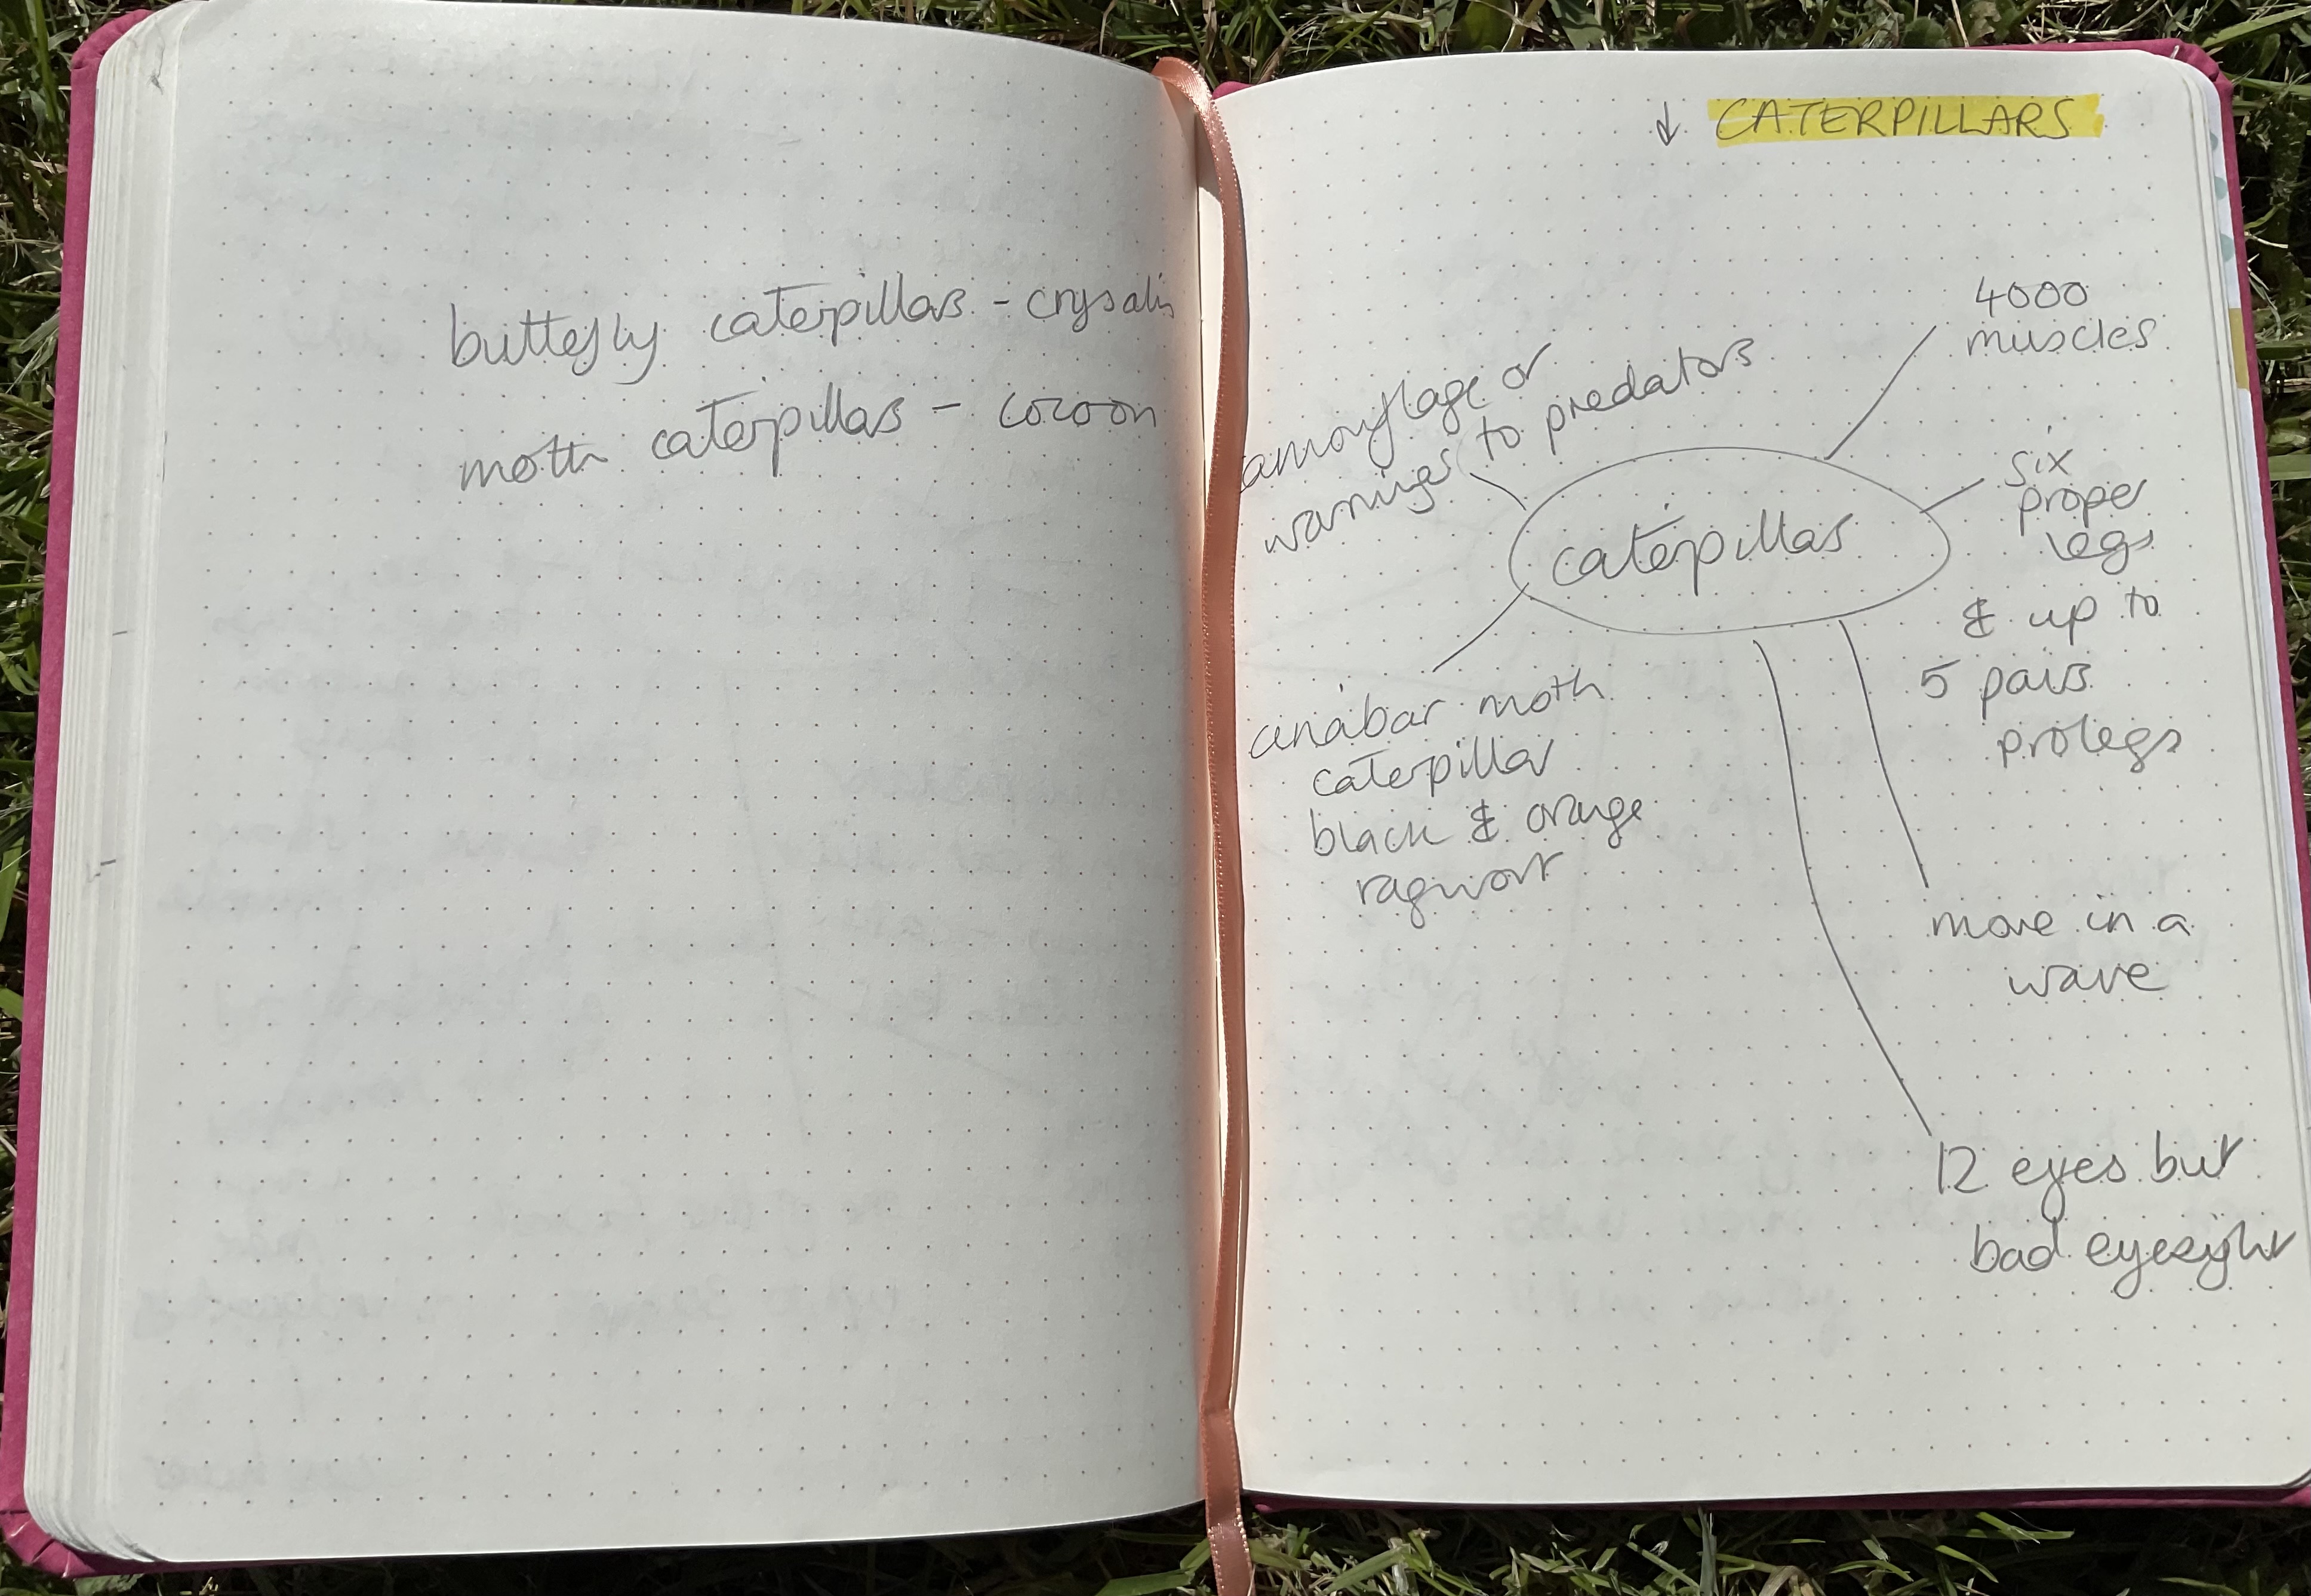 butterfly caterpillars - crysalis
moth caterpillars - cocoon
↓ CATERPILLARS
4000
muscles
camouflage or
warnings to predators
caterpillars
six
proper
legs
& up to
5 pairs
prolegs
cinabar moth
caterpillar
black & orange
ragwort
move in a
wave
12 eyes but
bad eyesight